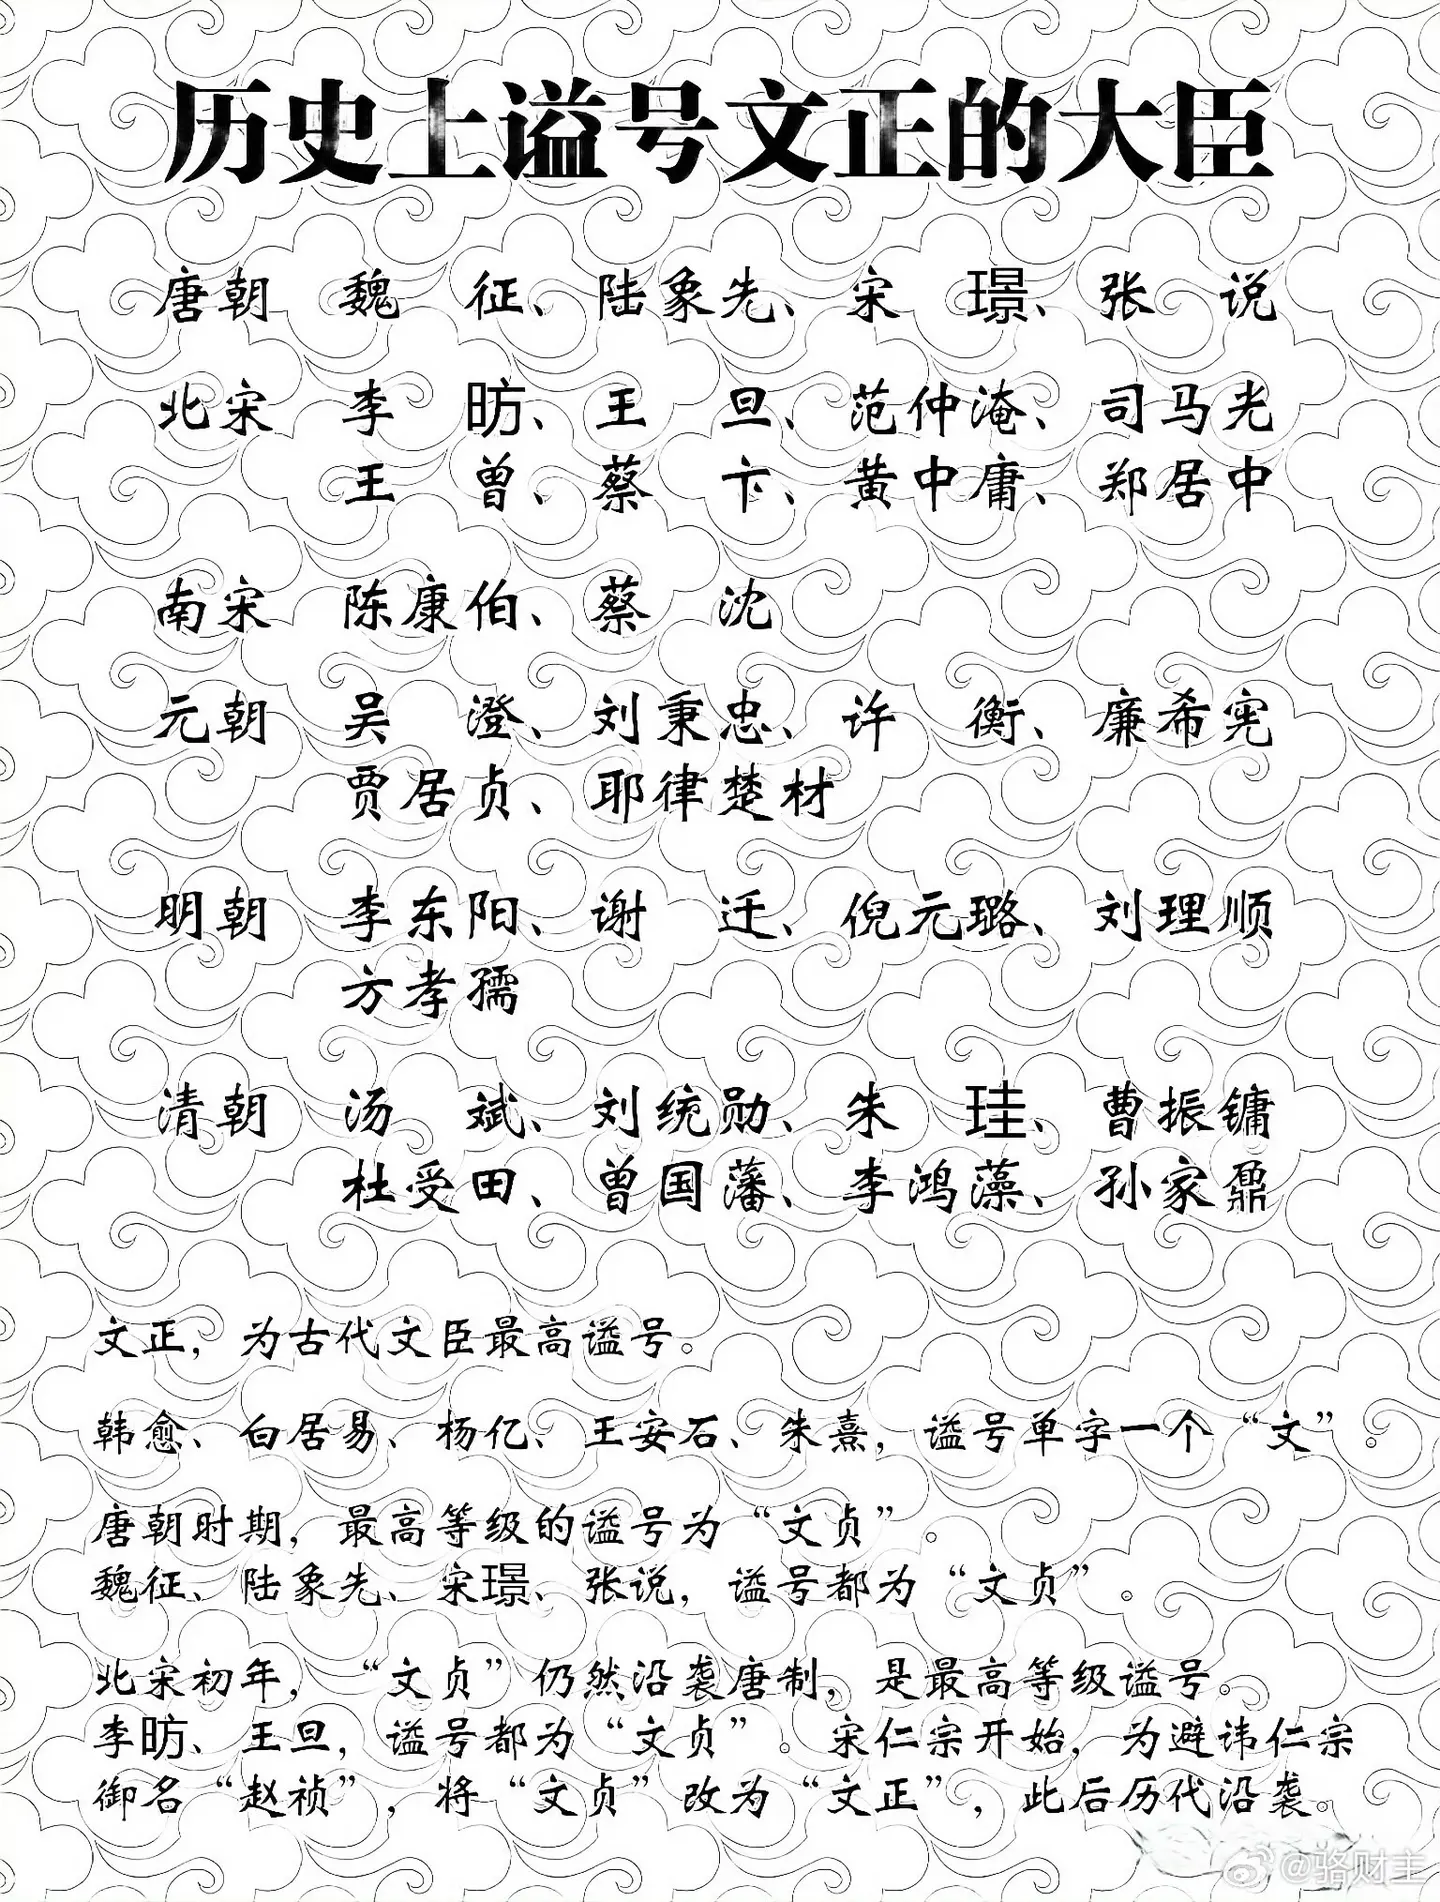 历史上谥号文正的大臣
唐朝 魏 征、陆象先、宋 璟、张 说
北宋 李 昉、王 旦、范仲淹、司马光
王 曾、蔡 卞、黄中庸、郑居中
南宋 陈康伯、蔡 沈
元朝 吴 澄、刘秉忠、许 衡、廉希宪
贾居贞、耶律楚材
明朝 李东阳、谢 迁、倪元璐、刘理顺
方孝孺
清朝 汤 斌、刘统勋、朱 珪、曹振镛
杜受田、曾国藩、李鸿藻、孙家鼐
文正，为古代文臣最高谥号。
韩愈、白居易、杨亿、王安石、朱熹，谥号单字一个“文”。
唐朝时期，最高等级的谥号为“文贞”。
魏征、陆象先、宋璟、张说，谥号都为“文贞”。
北宋初年，“文贞”仍然沿袭唐制，是最高等级谥号。
李昉、王旦，谥号都为“文贞”。宋仁宗开始，为避讳仁宗
御名“赵祯”，将“文贞”改为“文正”，此后历代沿袭。
@骆财主